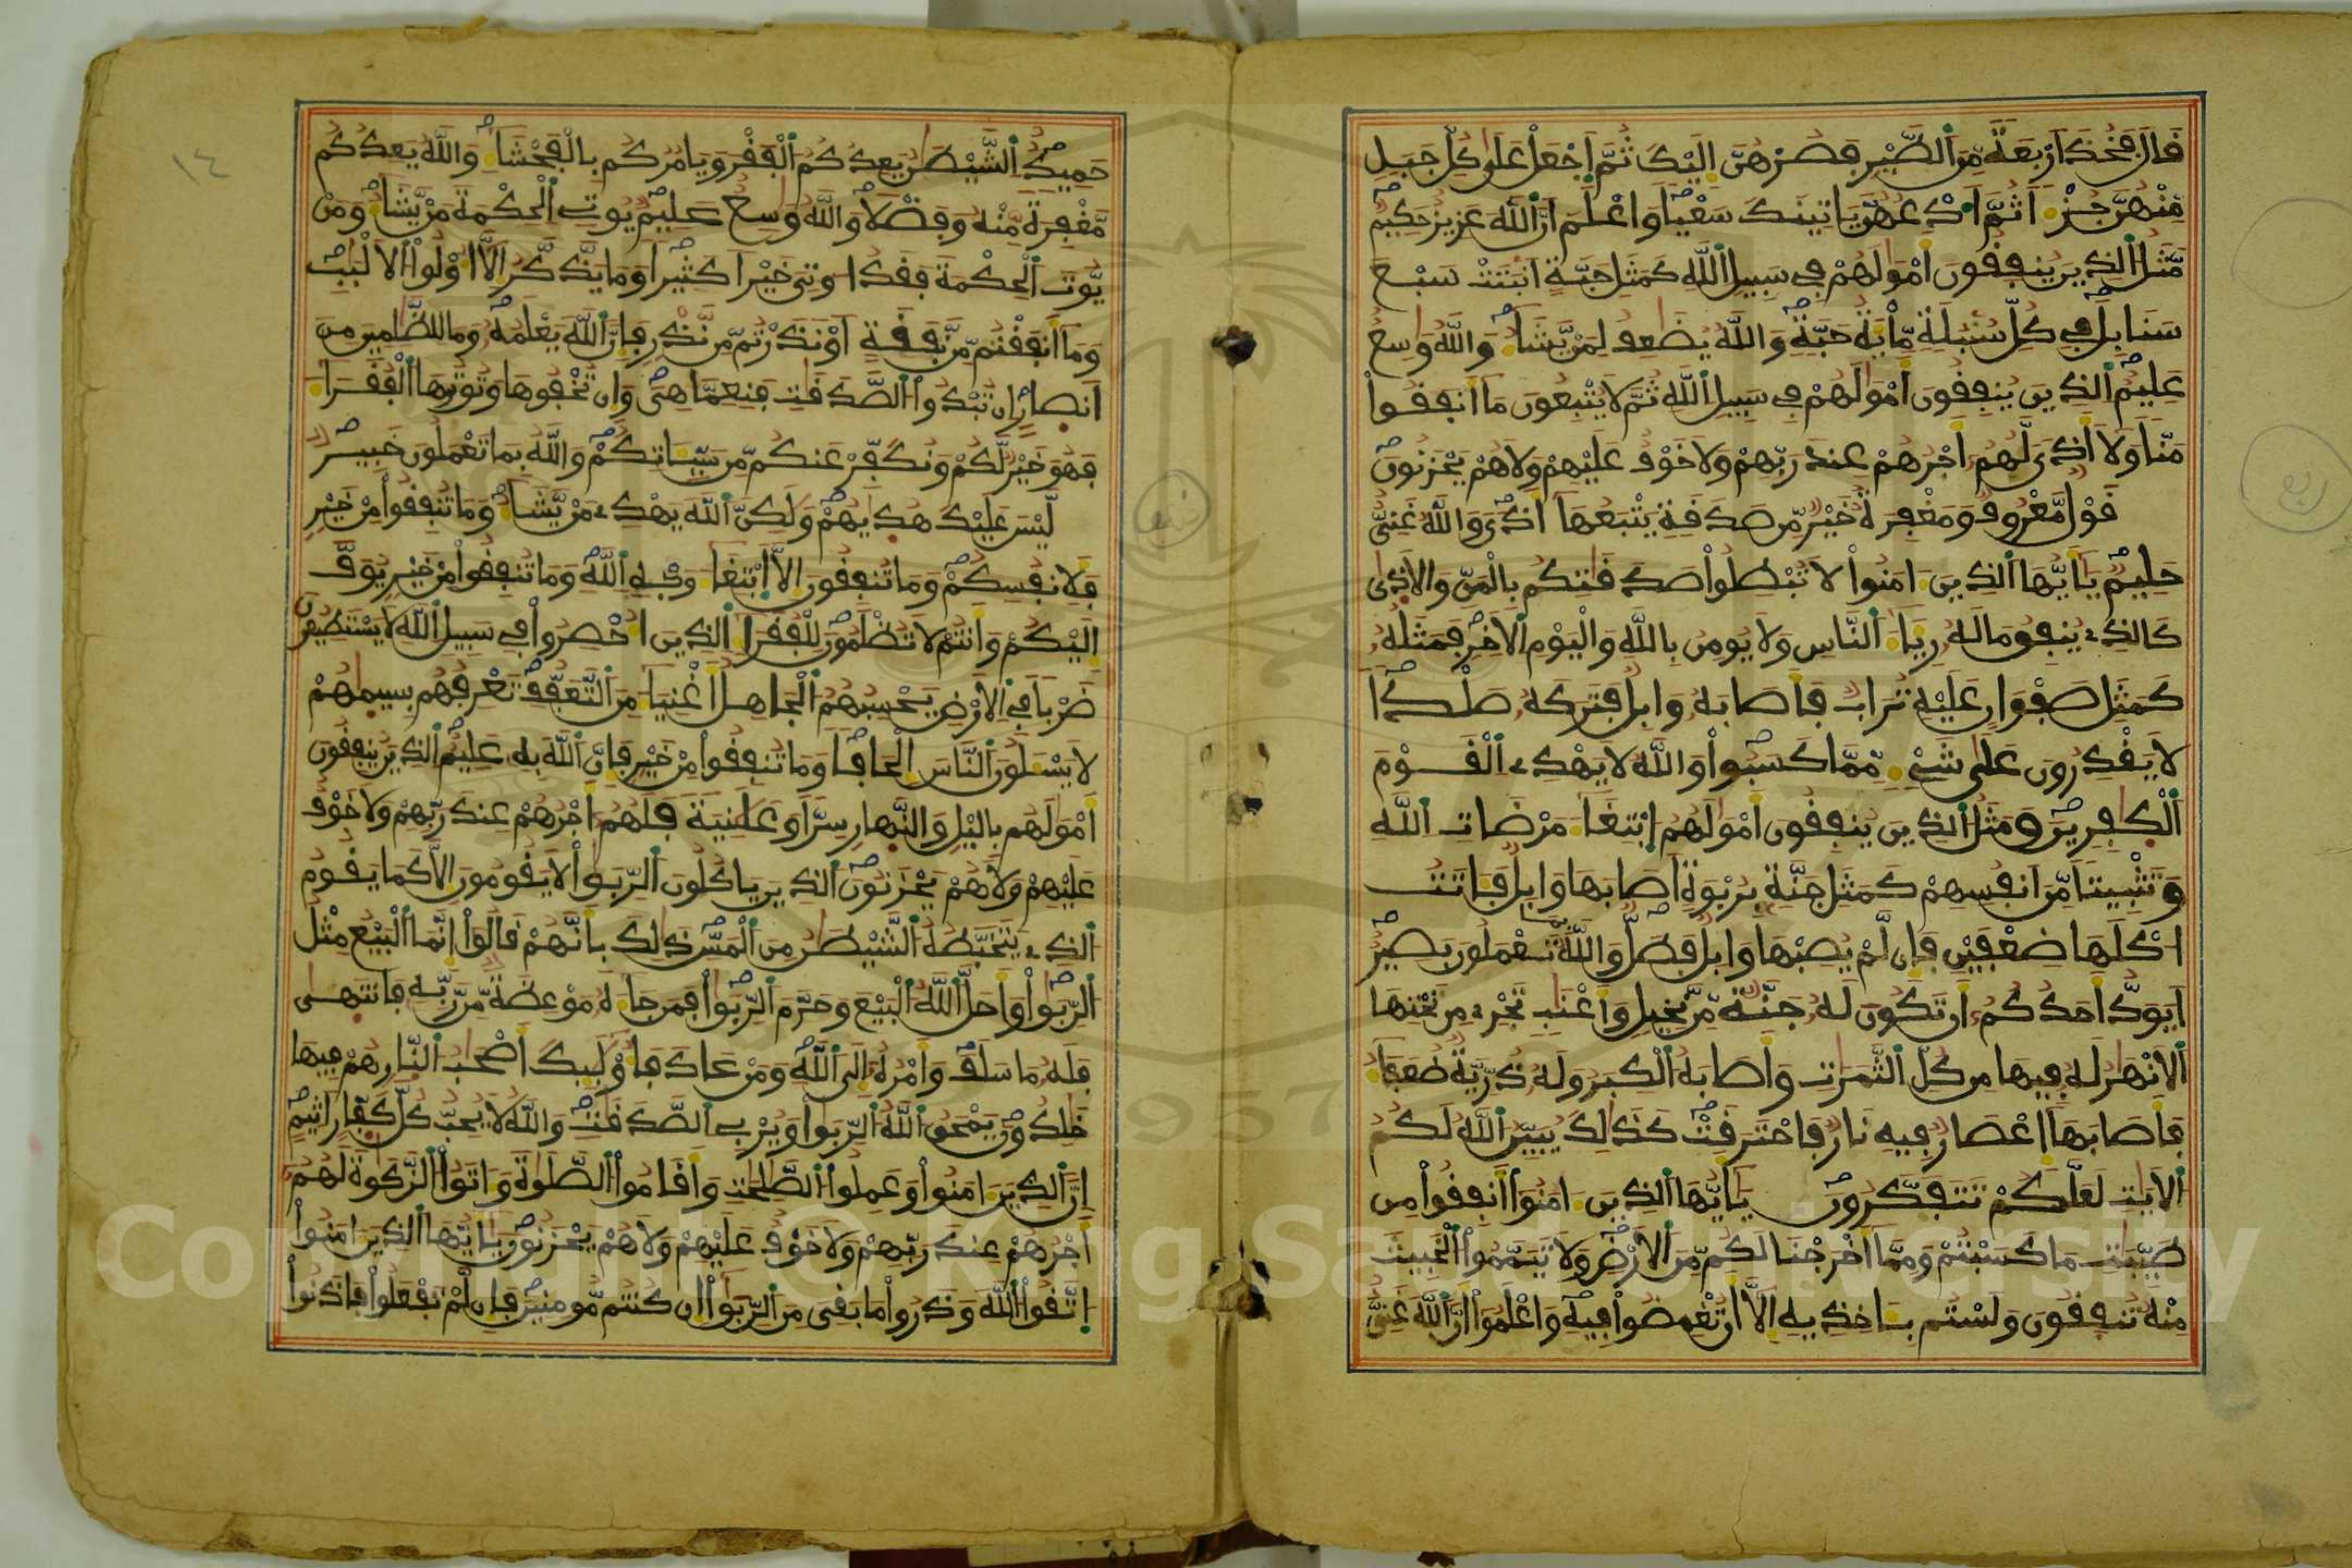 قَالَ فَخُذَ اَرْبَعَةٗ مِّنَ اَلطَّيْرِ فَصُرْهُنَّ إِلَيْكَ ثُمَّ اَجْعَلْ عَلَىٰ كُلِّ جَبَلٖ
مِّنْهُنَّ جُزْءاٗ ثُمَّ اَدْعُهُنَّ يَاتِينَكَ سَعْياٗ وَاعْلَمَ اَنَّ اَللَّهَ عَزِيزٌ حَكِيمٌ
مَّثَلُ اُلذِينَ يُنفِقُونَ أَمْوَٰلَهُمْ فِي سَبِيلِ اِللَّهِ كَمَثَلِ حَبَّةٍ اَنۢبَتَتْ سَبْعَ
سَنَابِلَ فِي كُلِّ سُنۢبُلَةٖ مِّاْيَةُ حَبَّةٖ وَاللَّهُ يُضَٰعِفُ لِمَنْ يَّشَآءُ وَاللَّهُ وَٰسِعٌ
عَلِيمٌ اُلذِينَ يُنفِقُونَ أَمْوَٰلَهُمْ فِي سَبِيلِ اِللَّهِ ثُمَّ لَا يُتْبِعُونَ مَا أَنفَقُواْ
مَنّاٗ وَلَا أَذىٗ لَّهُمُ أَجْرُهُمْ عِندَ رَبِّهِمْ وَلَا خَوْفٌ عَلَيْهِمْ وَلَا هُمْ يَحْزَنُونَ
قَوْلٌ مَّعْرُوفٌ وَمَغْفِرَةٌ خَيْرٌ مِّن صَدَقَةٖ يَتْبَعُهَا أَذىٗ وَاللَّهُ غَنِيٌّ
حَلِيمٌ يَٰأَيُّهَا اَلذِينَ ءَامَنُواْ لَا تُبْطِلُواْ صَدَقَٰتِكُم بِالْمَنِّ وَالْأَذَىٰ
كَالذِي يُنفِقُ مَالَهُ رِيَآءَ اَلنَّاسِ وَلَا يُومِنُ بِاللَّهِ وَالْيَوْمِ اِلْأَخِرِ فَمَثَلُهُ
كَمَثَلِ صَفْوَانٍ عَلَيْهِ تُرَابٌ فَأَصَابَهُ وَابِلٌ فَتَرَكَهُ صَلْداٗ
لَا يَقْدِرُونَ عَلَىٰ شَيْءٖ مِّمَّا كَسَبُواْ وَاللَّهُ لَا يَهْدِي اِلْقَوْمَ
اَلْكَٰفِرِينَ وَمَثَلُ اُلذِينَ يُنفِقُونَ أَمْوَٰلَهُمُ اُبْتِغَآءَ مَرْضَاتِ اِللَّهِ
وَتَثْبِيتاٗ مِّنَ اَنفُسِهِمْ كَمَثَلِ جَنَّةِۢ بِرُبْوَةٍ اَصَابَهَا وَابِلٌ فَـَٔاتَتُ
اُكْلَهَا ضِعْفَيْنِ فَإِن لَّمْ يُصِبْهَا وَابِلٌ فَطَلٌّ وَاللَّهُ بِمَا تَعْمَلُونَ بَصِيرٌ
اَيَوَدُّ أَحَدُكُمُ أَن تَكُونَ لَهُ جَنَّةٌ مِّن نَّخِيلٖ وَأَعْنَٰبٖ تَجْرِي مِن تَحْتِهَا
اَلْأَنْهَٰرُ لَهُ فِيهَا مِن كُلِّ اِلثَّمَرَٰتِ وَأَصَابَهُ اُلْكِبَرُ وَلَهُ ذُرِّيَّةٌ ضُعَفَآءُ
فَأَصَابَهَا إِعْصَارٌ فِيهِ نَارٌ فَاحْتَرَقَتْ كَذَٰلِكَ يُبَيِّنُ اُللَّهُ لَكُمُ
اُلْأَيَٰتِ لَعَلَّكُمْ تَتَفَكَّرُونَ يَٰأَيُّهَا اَلذِينَ ءَامَنُواْ أَنفِقُواْ مِن
طَيِّبَٰتِ مَا كَسَبْتُمْ وَمِمَّا أَخْرَجْنَا لَكُم مِّنَ اَلْأَرْضِ وَلَا تَيَمَّمُواْ اُلْخَبِيثَ
مِنْهُ تُنفِقُونَ وَلَسْتُم بِـَٔاخِذِيهِ إِلَّا أَن تُغْمِضُواْ فِيهِ وَاعْلَمُواْ أَنَّ اَللَّهَ غَنِيٌّ
١٤
حَمِيدٌ اُلشَّيْطَٰنُ يَعِدُكُمُ اُلْفَقْرَ وَيَامُرُكُم بِالْفَحْشَآءِ وَاللَّهُ يَعِدُكُم
مَّغْفِرَةٗ مِّنْهُ وَفَضْلاٗ وَاللَّهُ وَٰسِعٌ عَلِيمٌ يُوتِي اِلْحِكْمَةَ مَنْ يَّشَآءُ وَمَنْ
يُّوتَ اَلْحِكْمَةَ فَقَدُ اوتِيَ خَيْراٗ كَثِيراٗ وَمَا يَذَّكَّرُ إِلَّا أُوْلُواْ اُلْأَلْبَٰبِ
وَمَا أَنفَقْتُم مِّن نَّفَقَةٍ اَوْ نَذَرْتُم مِّن نَّذْرٖ فَإِنَّ اَللَّهَ يَعْلَمُهُ وَمَا لِلظَّٰلِمِينَ مِنَ
اَنصارٍ اِن تُبْدُواْ اُلصَّدَقَٰتِ فَنِعِمَّا هِيَ وَإِن تُخْفُوهَا وَتُوتُوهَا اَلْفُقَرَآءَ
فَهُوَ خَيْرٌ لَّكُمْ وَنُكَفِّرْ عَنكُم مِّن سَيِّـَٔاتِكُمْ وَاللَّهُ بِمَا تَعْمَلُونَ خَبِيرٌ
لَّيْسَ عَلَيْكَ هُدَىٰهُمْ وَلَٰكِنَّ اَللَّهَ يَهْدِي مَنْ يَّشَآءُ وَمَا تُنفِقُواْ مِنْ خَيْرٖ
فَلِأَنفُسِكُمْ وَمَا تُنفِقُونَ إِلَّا اَبْتِغَآءَ وَجْهِ اِللَّهِ وَمَا تُنفِقُواْ مِنْ خَيْرٖ يُوَفَّ
إِلَيْكُمْ وَأَنتُمْ لَا تُظْلَمُونَ لِلْفُقَرَآءِ اِلذِينَ أُحْصِرُواْ فِي سَبِيلِ اِللَّهِ لَا يَسْتَطِيعُونَ
ضَرْباٗ فِي اِلْأَرْضِ يَحْسِبُهُمُ اُلْجَاهِلُ أَغْنِيَآءَ مِنَ اَلتَّعَفُّفِ تَعْرِفُهُم بِسِيمَٰهُمْ
لَا يَسْـَٔلُونَ اَلنَّاسَ إِلْحَافاٗ وَمَا تُنفِقُواْ مِنْ خَيْرٖ فَإِنَّ اَللَّهَ بِهِ عَلِيمٌ اُلذِينَ يُنفِقُونَ
أَمْوَٰلَهُم بِاليْلِ وَالنَّهارِ سِرّاٗ وَعَلَٰنِيَةٗ فَلَهُمُ أَجْرُهُمْ عِندَ رَبِّهِمْ وَلَا خَوْفٌ
عَلَيْهِمْ وَلَا هُمْ يَحْزَنُونَ اَلذِينَ يَاكُلُونَ اَلرِّبَوٰاْ لَا يَقُومُونَ إِلَّا كَمَا يَقُومُ
اُلذِي يَتَخَبَّطُهُ اُلشَّيْطَٰنُ مِنَ اَلْمَسِّ ذَٰلِكَ بِأَنَّهُمْ قَالُواْ إِنَّمَا اَلْبَيْعُ مِثْلُ
اُلرِّبَوٰاْ وَأَحَلَّ اَللَّهُ اُلْبَيْعَ وَحَرَّمَ اَلرِّبَوٰاْ فَمَن جَآءَهُ مَوْعِظَةٌ مِّن رَّبِّهِ فَانتَهىٰ
فَلَهُ مَا سَلَفَ وَأَمْرُهُ إِلَى اَللَّهِ وَمَنْ عَادَ فَأُوْلَٰئِكَ أَصْحَٰبُ اُلنّارِ هُمْ فِيهَا
خَٰلِدُونَ يَمْحَقُ اُللَّهُ اُلرِّبَوٰاْ وَيُرْبِي اِلصَّدَقَٰتِ وَاللَّهُ لَا يُحِبُّ كُلَّ كَفّارٍ اَثِيمٍ
اِنَّ اَلذِينَ ءَامَنُواْ وَعَمِلُواْ اُلصَّٰلِحَٰتِ وَأَقَامُواْ اُلصَّلَوٰةَ وَءَاتَوُاْ اُلزَّكَوٰةَ لَهُمُ
أَجْرُهُمْ عِندَ رَبِّهِمْ وَلَا خَوْفٌ عَلَيْهِمْ وَلَا هُمْ يَحْزَنُونَ يَٰأَيُّهَا اَلذِينَ ءَامَنُواْ
اُتَّقُواْ اُللَّهَ وَذَرُواْ مَا بَقِيَ مِنَ اَلرِّبَوٰاْ إِن كُنتُم مُّومِنِينَ فَإِن لَّمْ تَفْعَلُواْ فَاذَنُواْ
Copyright © King Saud University
1957